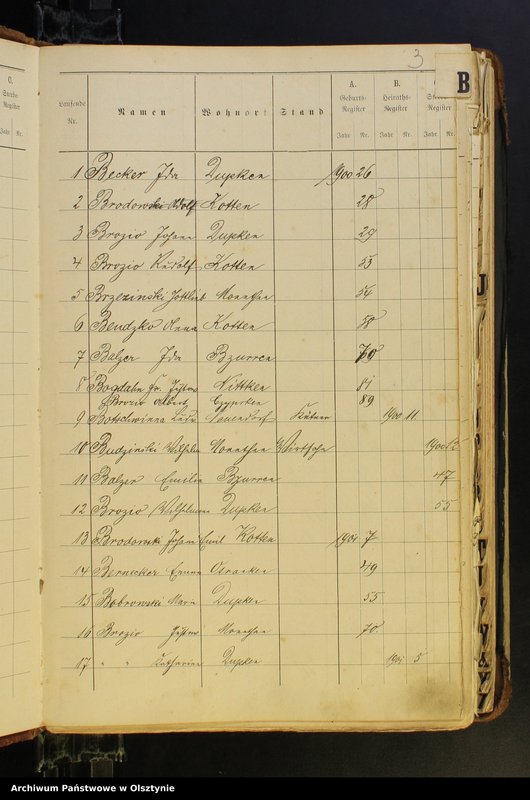 3
B
Laufende Nr. Namen Wohnort Stand A. Geburts-Register Jahr Nr. B. Heiraths-Register Jahr Nr. C. Register Jahr Nr.
1 Becker Ida Dupken 1900 26
2 Brodowski Adolf Kotten 28
3 Brozio Johann Dupken 29
4 Brozio Rudolf Kotten 53
5 Brzezinski Gottlieb Monethen 54
6 Bendzko Anna Kotten 58
7 Balzer Ida Bzurren 70
8 Bogdahn Nittken 81
Brozio Albert 89
9 1900 11
10 Budzinski Wilhelm Monethen 1900
11 Balzer Emilie Bzurren 47
12 Brozio Wilhelmine Dupken 55
13 Brodowski Johann Emil Kotten 1901 7
14 Bernecker Emma 49
15 Bobrowski Marie Dupken 55
16 Brozio Monethen 70
17 " " Katharina Dupken 1901 5
J
Archiwum Państwowe w Olsztynie